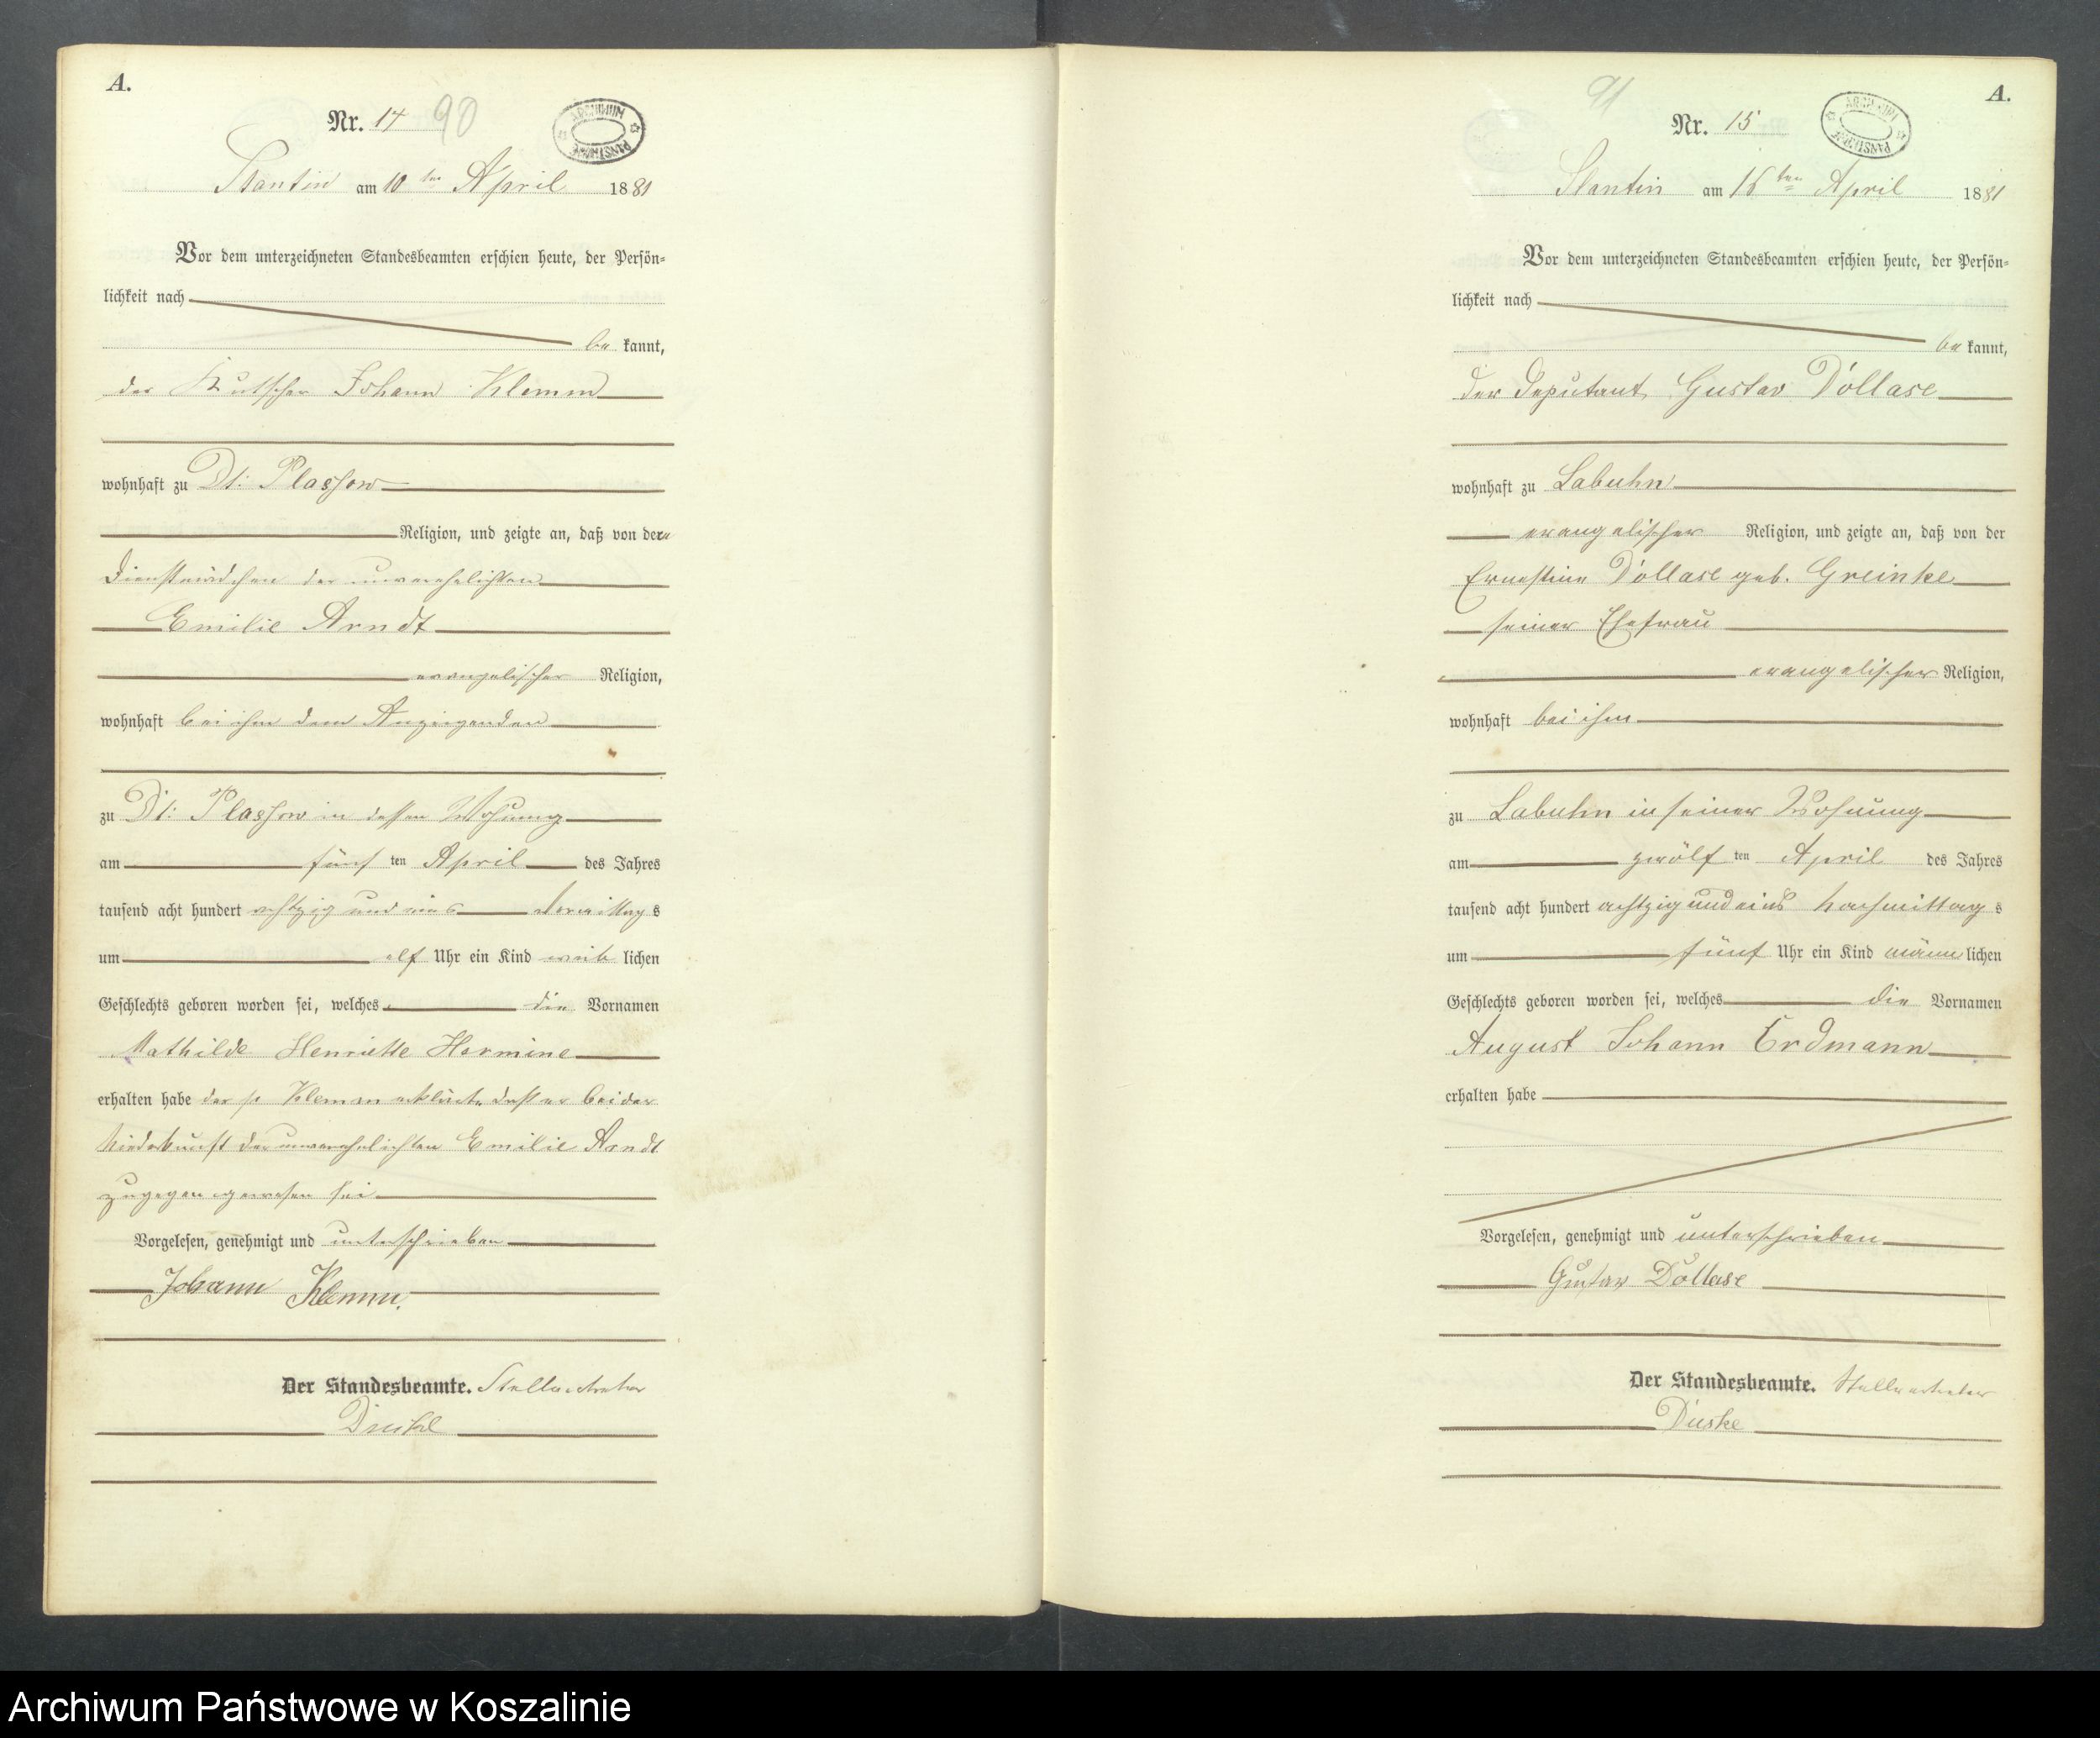 A.
Nr. 14 90
ARCHIWUM PAŃSTWOWE
Stantin am 10ten April 1881
Vor dem unterzeichneten Standesbeamten erschien heute, der Persön-
lichkeit nach
be kannt,
der Kutscher Johann Klemm
wohnhaft zu Dt: Plassow
Religion, und zeigte an, daß von der
Dienstmädchen der unverehelichten
Emilie Arndt
evangelischer Religion,
wohnhaft bei ihm dem Anzeigenden
zu Dt: Plassow in dessen Wohnung
am fünf ten April des Jahres
tausend acht hundert achtzig und eins Vormittags
um elf Uhr ein Kind weib lichen
Geschlechts geboren worden sei, welches die Vornamen
Mathilde Henriette Hermine
erhalten habe der p Klemm erklärte daß er bei der
Niederkunft der unverehelichten Emilie Arndt
zugegen gewesen sei
Vorgelesen, genehmigt und unterschrieben
Johann Klemm.
Der Standesbeamte. Stellvertreter
A.
91
Nr. 15
ARCHIWUM PAŃSTWOWE
Stantin am 16ten April 1881
Vor dem unterzeichneten Standesbeamten erschien heute, der Persön-
lichkeit nach
be kannt,
der Deputant Gustav Döllase
wohnhaft zu Labuhn
evangelischer Religion, und zeigte an, daß von der
Ernestine Döllase geb. Greinke
seiner Ehefrau
evangelischer Religion,
wohnhaft bei ihm
zu Labuhn in seiner Wohnung
am zwölf ten April des Jahres
tausend acht hundert achtzig und eins Nachmittags
um fünf Uhr ein Kind männ lichen
Geschlechts geboren worden sei, welches die Vornamen
August Johann Erdmann
erhalten habe
Vorgelesen, genehmigt und unterschrieben
Gustav Döllase
Der Standesbeamte. Stellvertreter
Archiwum Państwowe w Koszalinie